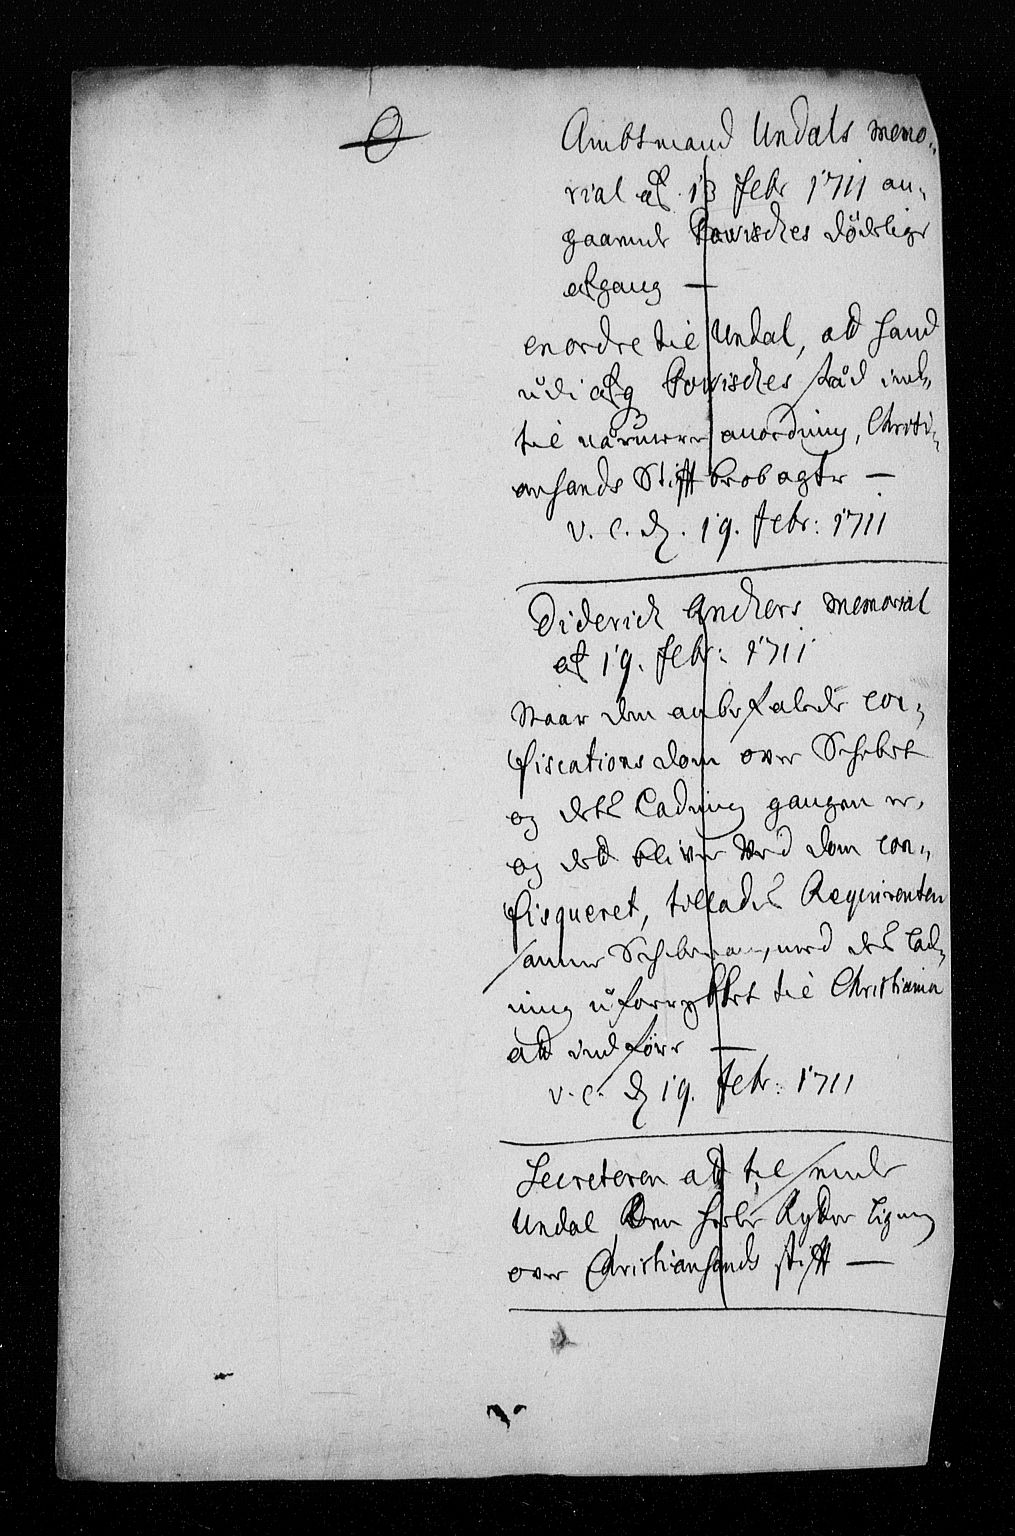 Ambtmand Undals memo„
rial af 13 Febr 1711 an„
gaaende Powisches dödelige
afgang —
en ordre til Undal, att hand
udi afg Powisches stæd ind„
til nærmere anordning, Christi„
anhands Stifft beobagter —
v. c. d. 19. Febr: 1711
Diderich Anchers memorial
af 19. Febr: 1711
Naar den anbefalede con„
fiscations dom over Schibet
og dets Ladning gangen er,
og det bliver ved dom con„
fisqueret, tillades Reqvirenten
samme Schib med des Lad„
ning uforrykket til Christiania
att indføre —
v. c. d 19. Febr: 1711
Secreteren att tilsende
Undal den heele Rytter Ligning
over Christianhands stifft —